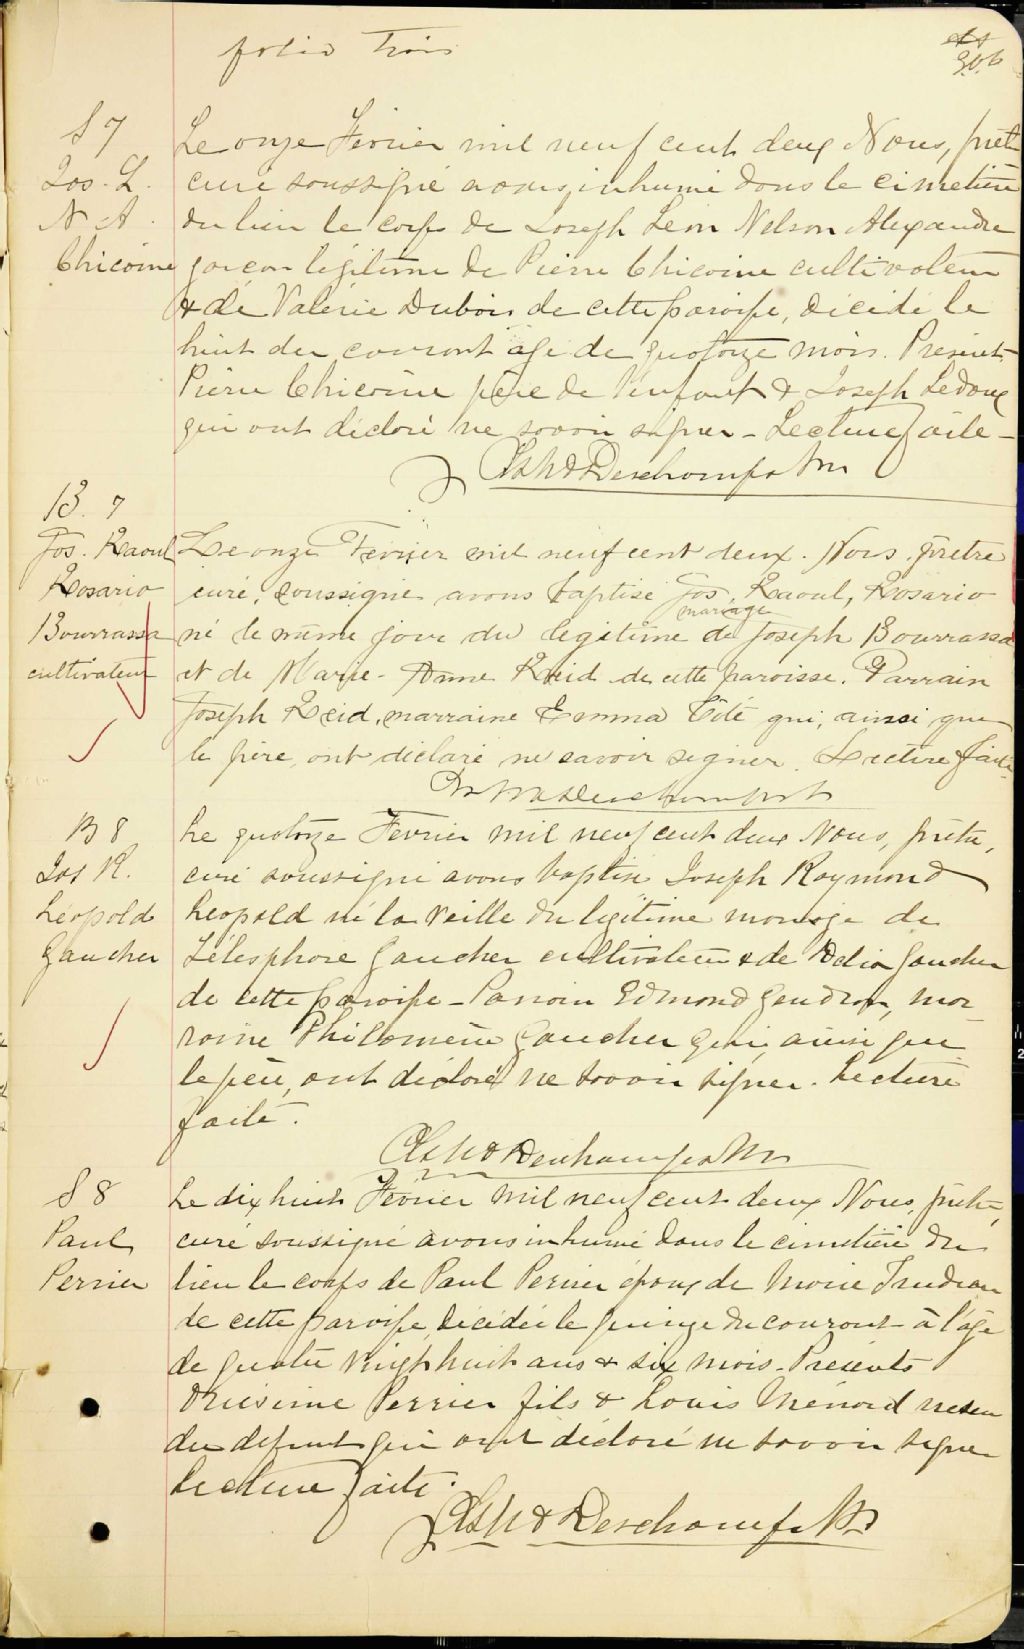 folio trois
S 7
Jos. L.
N A.
Chicoine
Le onze Février mil neuf cent deux Nous, prêt
curé soussigné avons, inhumé dans le cimetière
du lieu le corps de Joseph Léon Nelson Alexandre
garçon légitime de Pierre Chicoine cultivateur
& de Valérie Dubois de cette paroisse, décédé le
huit du courant âgé de quatorze mois. Présents
Pierre Chicoine père de l'enfant & Joseph Ledoux
qui ont déclaré ne savoir signer - Lecture faite -
Deschamps Ptre
B. 7
Jos. Raoul
Rosario
Bourrassa
cultivateur
Le onze Fevrier mil neuf cent deux. Nous. prêtre
curé, soussigné avons baptisé Jos, Raoul, Rosario
né le même jour du légitime mariage de Joseph Bourrassa
et de Marie-Anne Reid de cette paroisse. Parrain
Joseph Reid, marraine Emma Côté qui, ainsi que
le père, ont déclaré ne savoir signer. Lecture faite.
Deschamps
B 8
Jos R.
Léopold
Gaucher
Le quatorze Fevrier mil neuf cent deux Nous, prêtre,
curé soussigné avons baptisé Joseph Raymond
Leopold né la veille du légitime mariage de
Télesphore Gaucher cultivateur & de Gaucher
de cette paroisse - Parrain Edmond Gaudron, mar
raine Philomène Gaucher qui, ainsi que
le père, ont déclaré ne savoir signer. Lecture
faite.
Deschamps Ptre
S 8
Paul
Perrier
Le dix huit Février mil neuf cent deux Nous, prêtre,
curé soussigné avons inhumé dans le cimetière du
lieu le corps de Paul Perrier époux de Marie Trudeau
de cette paroisse, décédé le quinze du courant - à l'âge
de quatre vingt huit ans & six mois - Présents
Onésime Perrier fils & Louis Ménard neveu
du défunt qui ont déclaré ne savoir signer
Lecture faite.
Deschamps Ptre